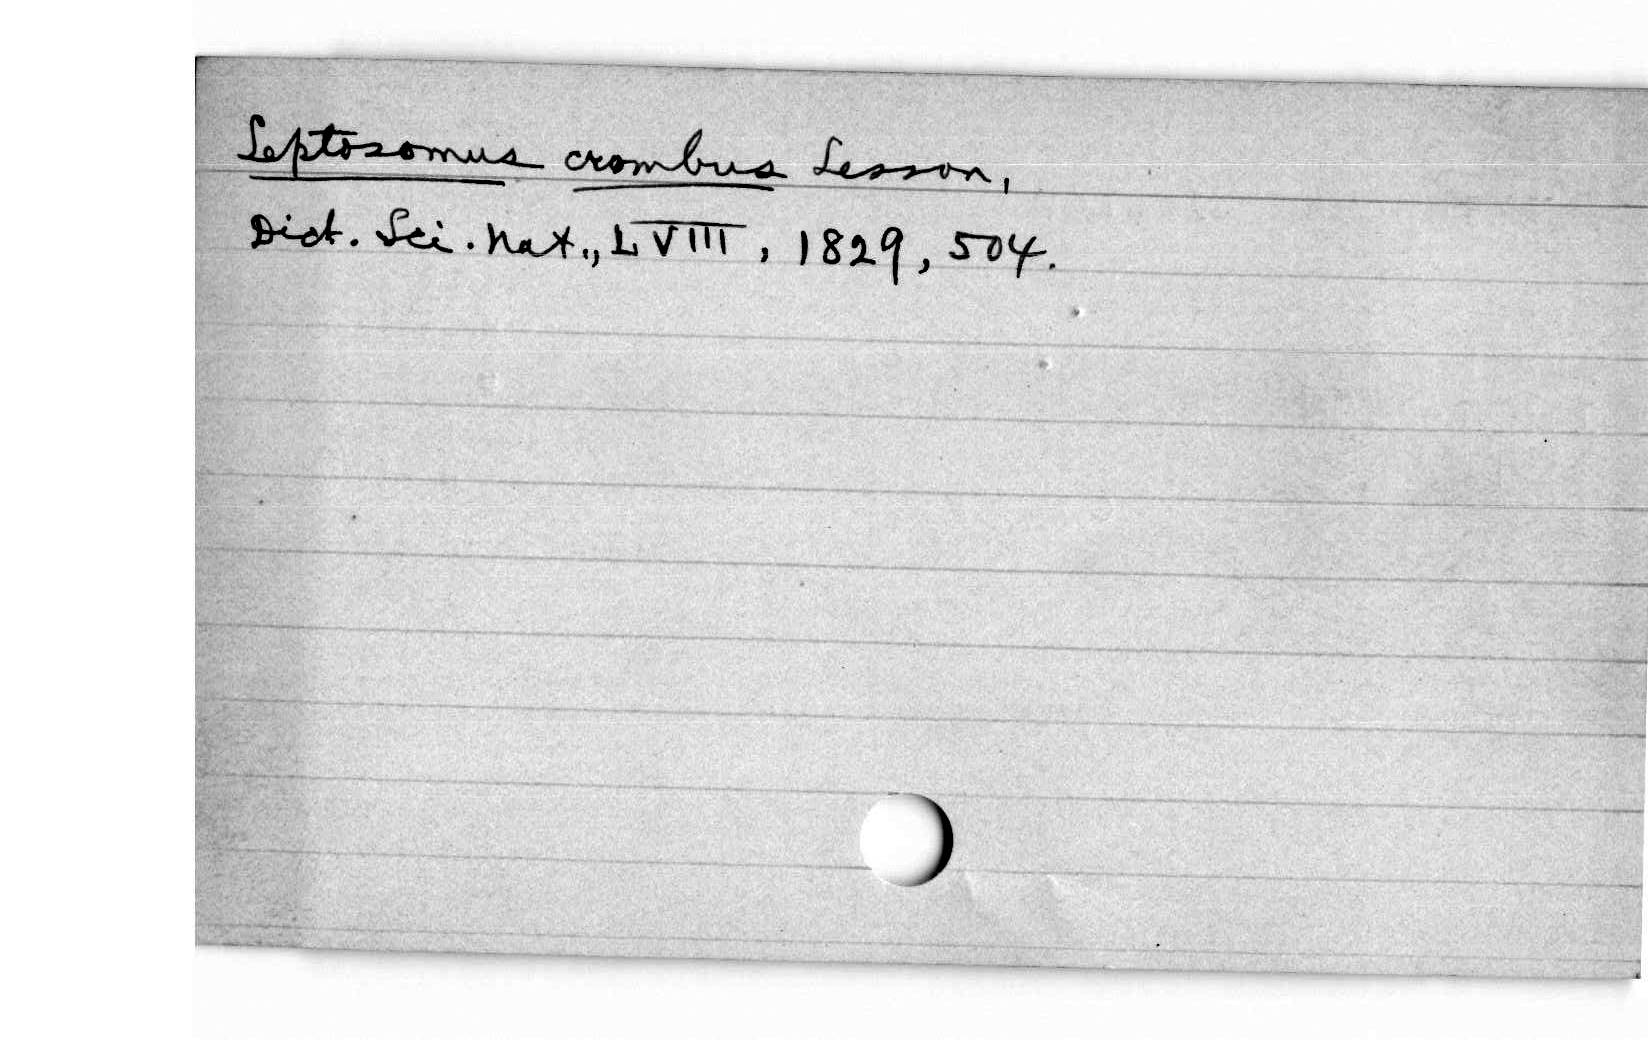 Leptosomus crombus Lesson,
Dict. Sci. Nat., LVIII, 1829, 504.